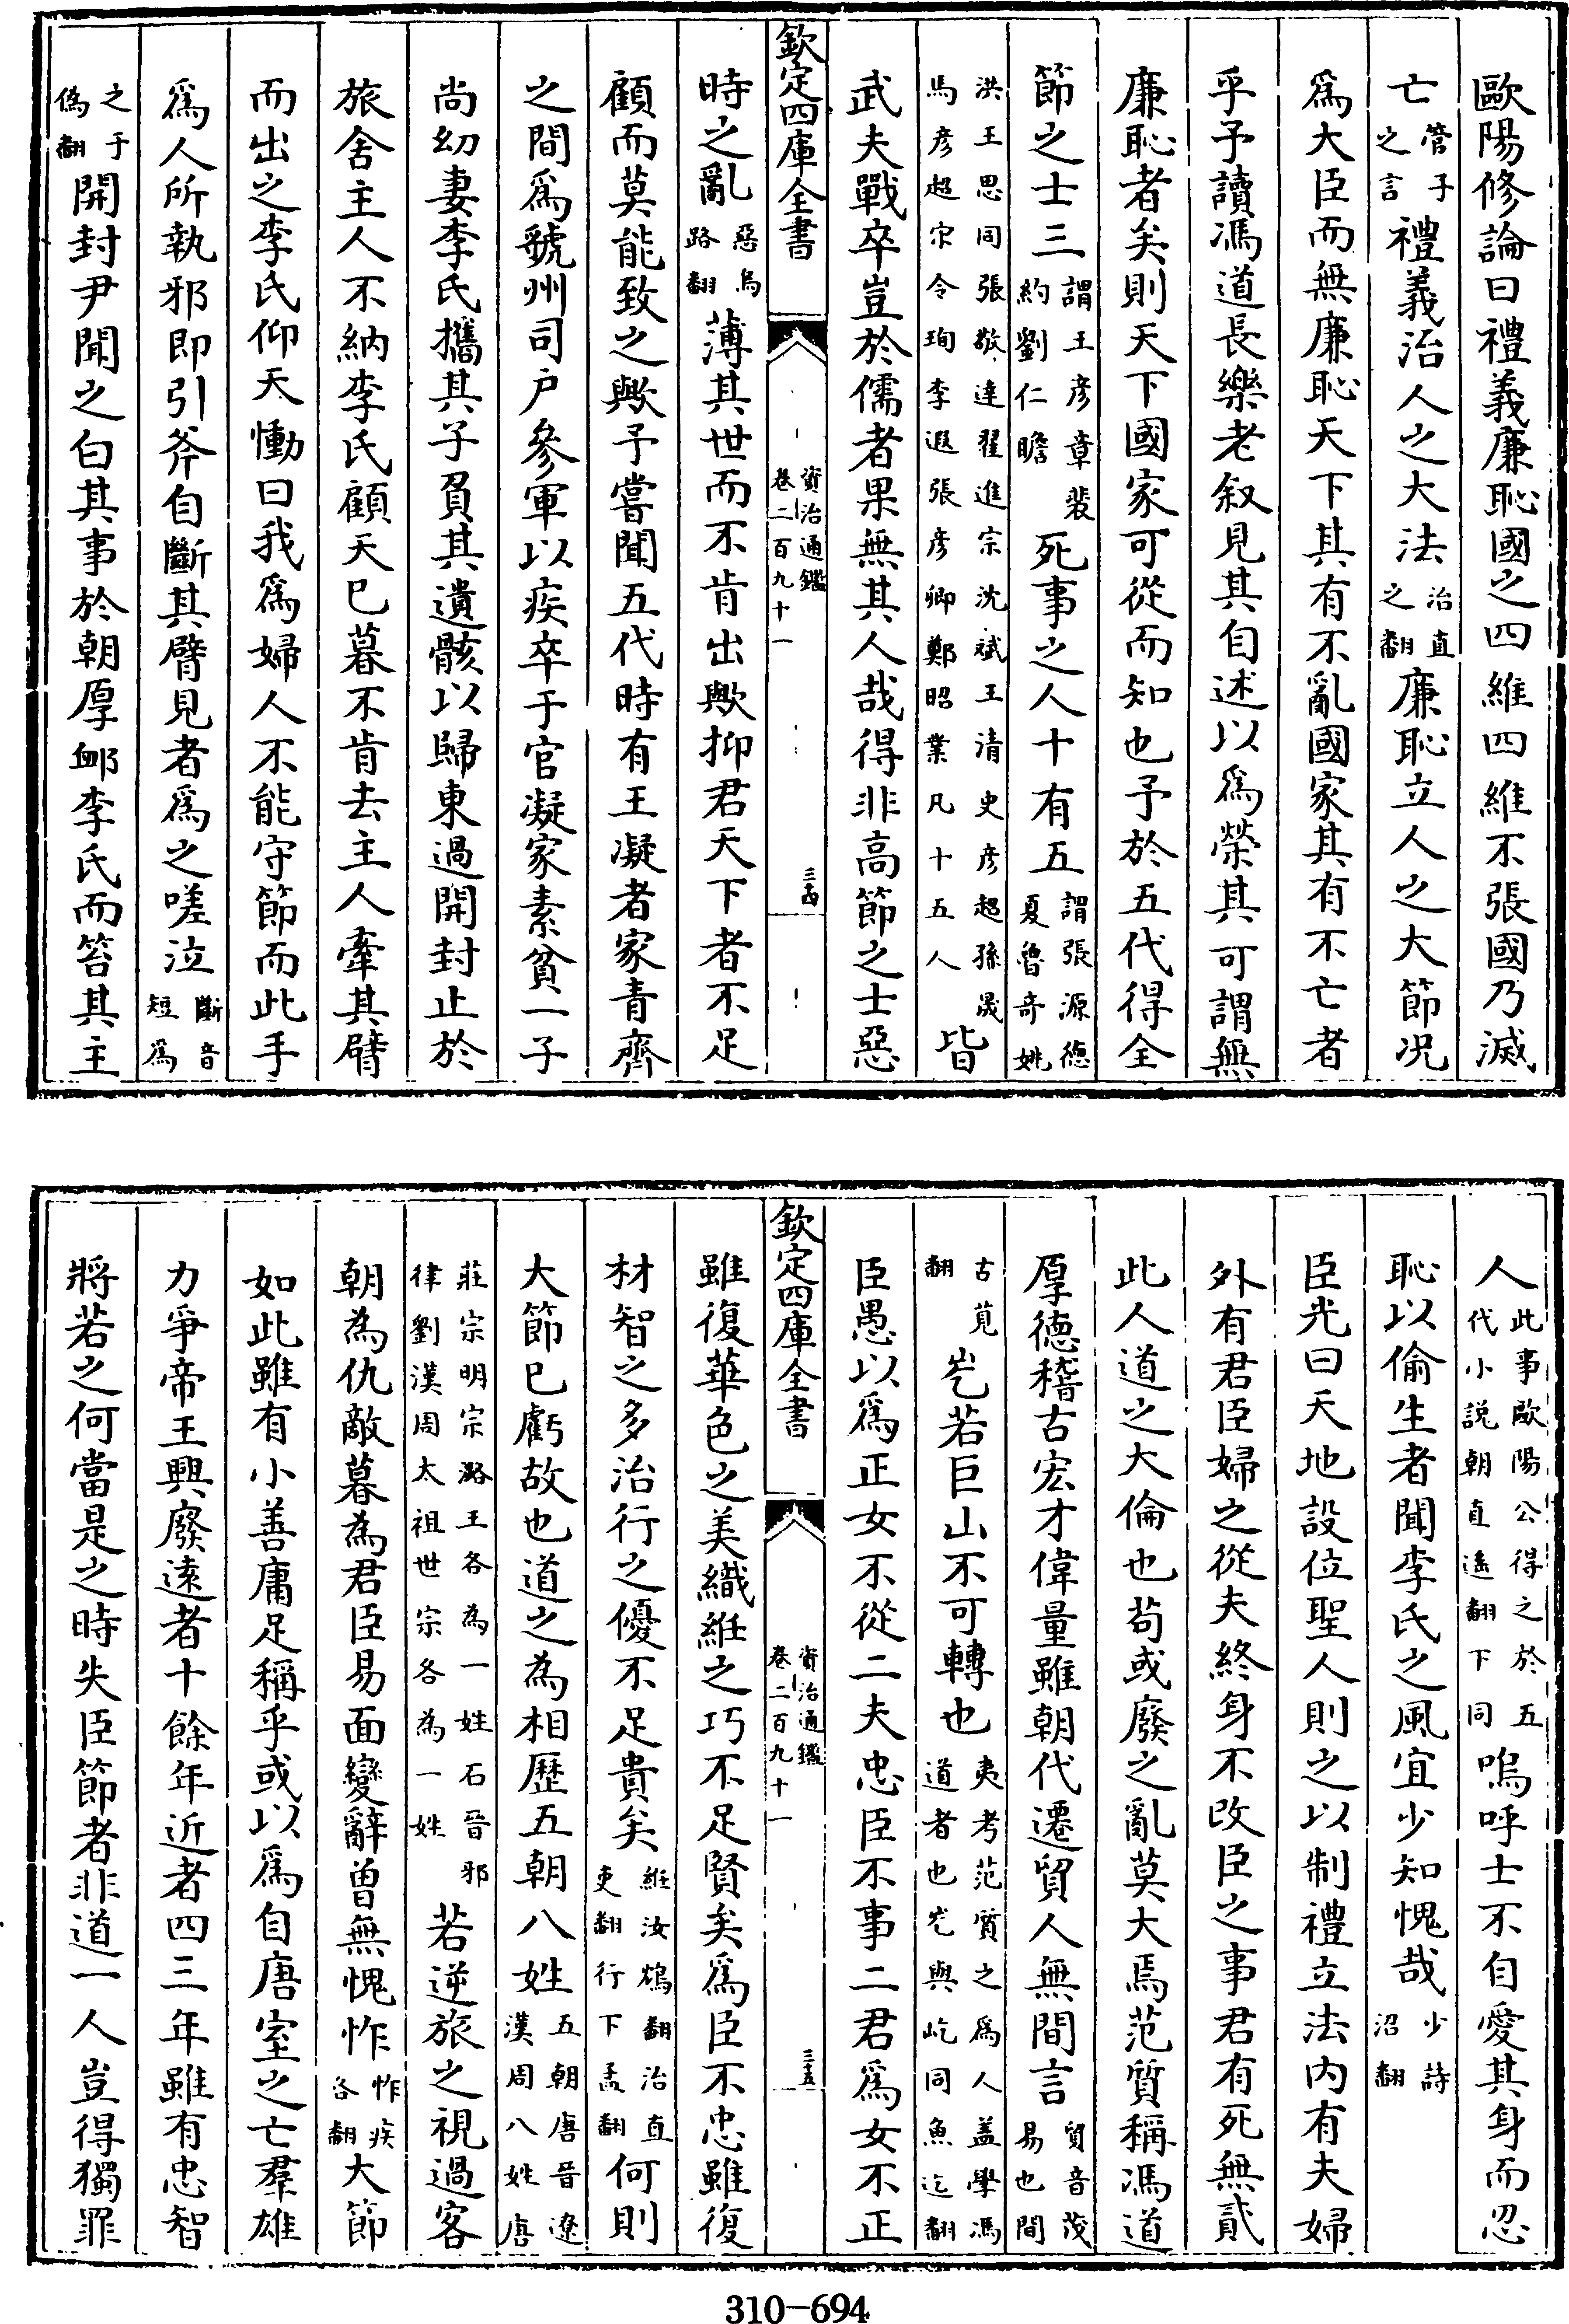 歐陽修論曰禮義廉恥國之四維四維不張國乃滅
亡管子之言禮義治人之大法治直之翻廉恥立人之大節况
爲大臣而無廉恥天下其有不亂國家其有不亡者
乎予讀馮道長樂老叙見其自述以爲榮其可謂無
廉恥者矣則天下國家可從而知也予於五代得全
節之士三謂王彦章裴約劉仁瞻死事之人十有五謂張源德夏魯奇姚
洪王思同張敬達翟進宗沈斌王清史彦超孫晟馬彦超宋令珣李遐張彦卿鄭昭業凡十五人皆
武夫戰卒豈於儒者果無其人哉得非高節之士惡
欽定四庫全書
資治通鑑
卷二百九十一
三十四
時之亂惡烏路翻薄其世而不肯出歟抑君天下者不足
顧而莫能致之歟予嘗聞五代時有王凝者家青齊
之間爲虢州司户參軍以疾卒于官凝家素貧一子
尚幼妻李氏攜其子負其遺骸以歸東過開封止於
旅舍主人不納李氏顧天已暮不肯去主人牽其臂
而出之李氏仰天慟曰我爲婦人不能守節而此手
爲人所執邪即引斧自斷其臂見者爲之嗟泣斷音短爲
之于偽翻開封尹聞之白其事於朝厚䘏李氏而笞其主
人此事歐陽公得之於五代小説朝直遥翻下同嗚呼士不自愛其身而忍
恥以偷生者聞李氏之風宜少知愧哉少詩沼翻
臣光曰天地設位聖人則之以制禮立法内有夫婦
外有君臣婦之從夫終身不改臣之事君有死無貳
此人道之大倫也苟或廢之亂莫大焉范質稱馮道
厚德稽古宏才偉量雖朝代遷貿人無間言貿音茂易也間
古莧翻屹若巨山不可轉也夷考范質之爲人盖學馮道者也屹與屹同魚迄翻
臣愚以爲正女不從二夫忠臣不事二君爲女不正
欽定四庫全書
資治通鑑
卷二百九十一
三十五
雖復華色之美織紝之巧不足賢矣爲臣不忠雖復
材智之多治行之優不足貴矣紝汝鴆翻治直吏翻行下孟翻何則
大節已虧故也道之為相歷五朝八姓五朝唐晉遼漢周八姓唐
莊宗明宗潞王各為一姓石晉邪律劉漢周太祖世宗各為一姓若逆旅之視過客
朝為仇敵暮為君臣易面變辭曽無愧怍怍疾各翻大節
如此雖有小善庸足稱乎或以爲自唐室之亡羣雄
力爭帝王興廢逺者十餘年近者四三年雖有忠智
將若之何當是之時失臣節者非道一人豈得獨罪
310-694